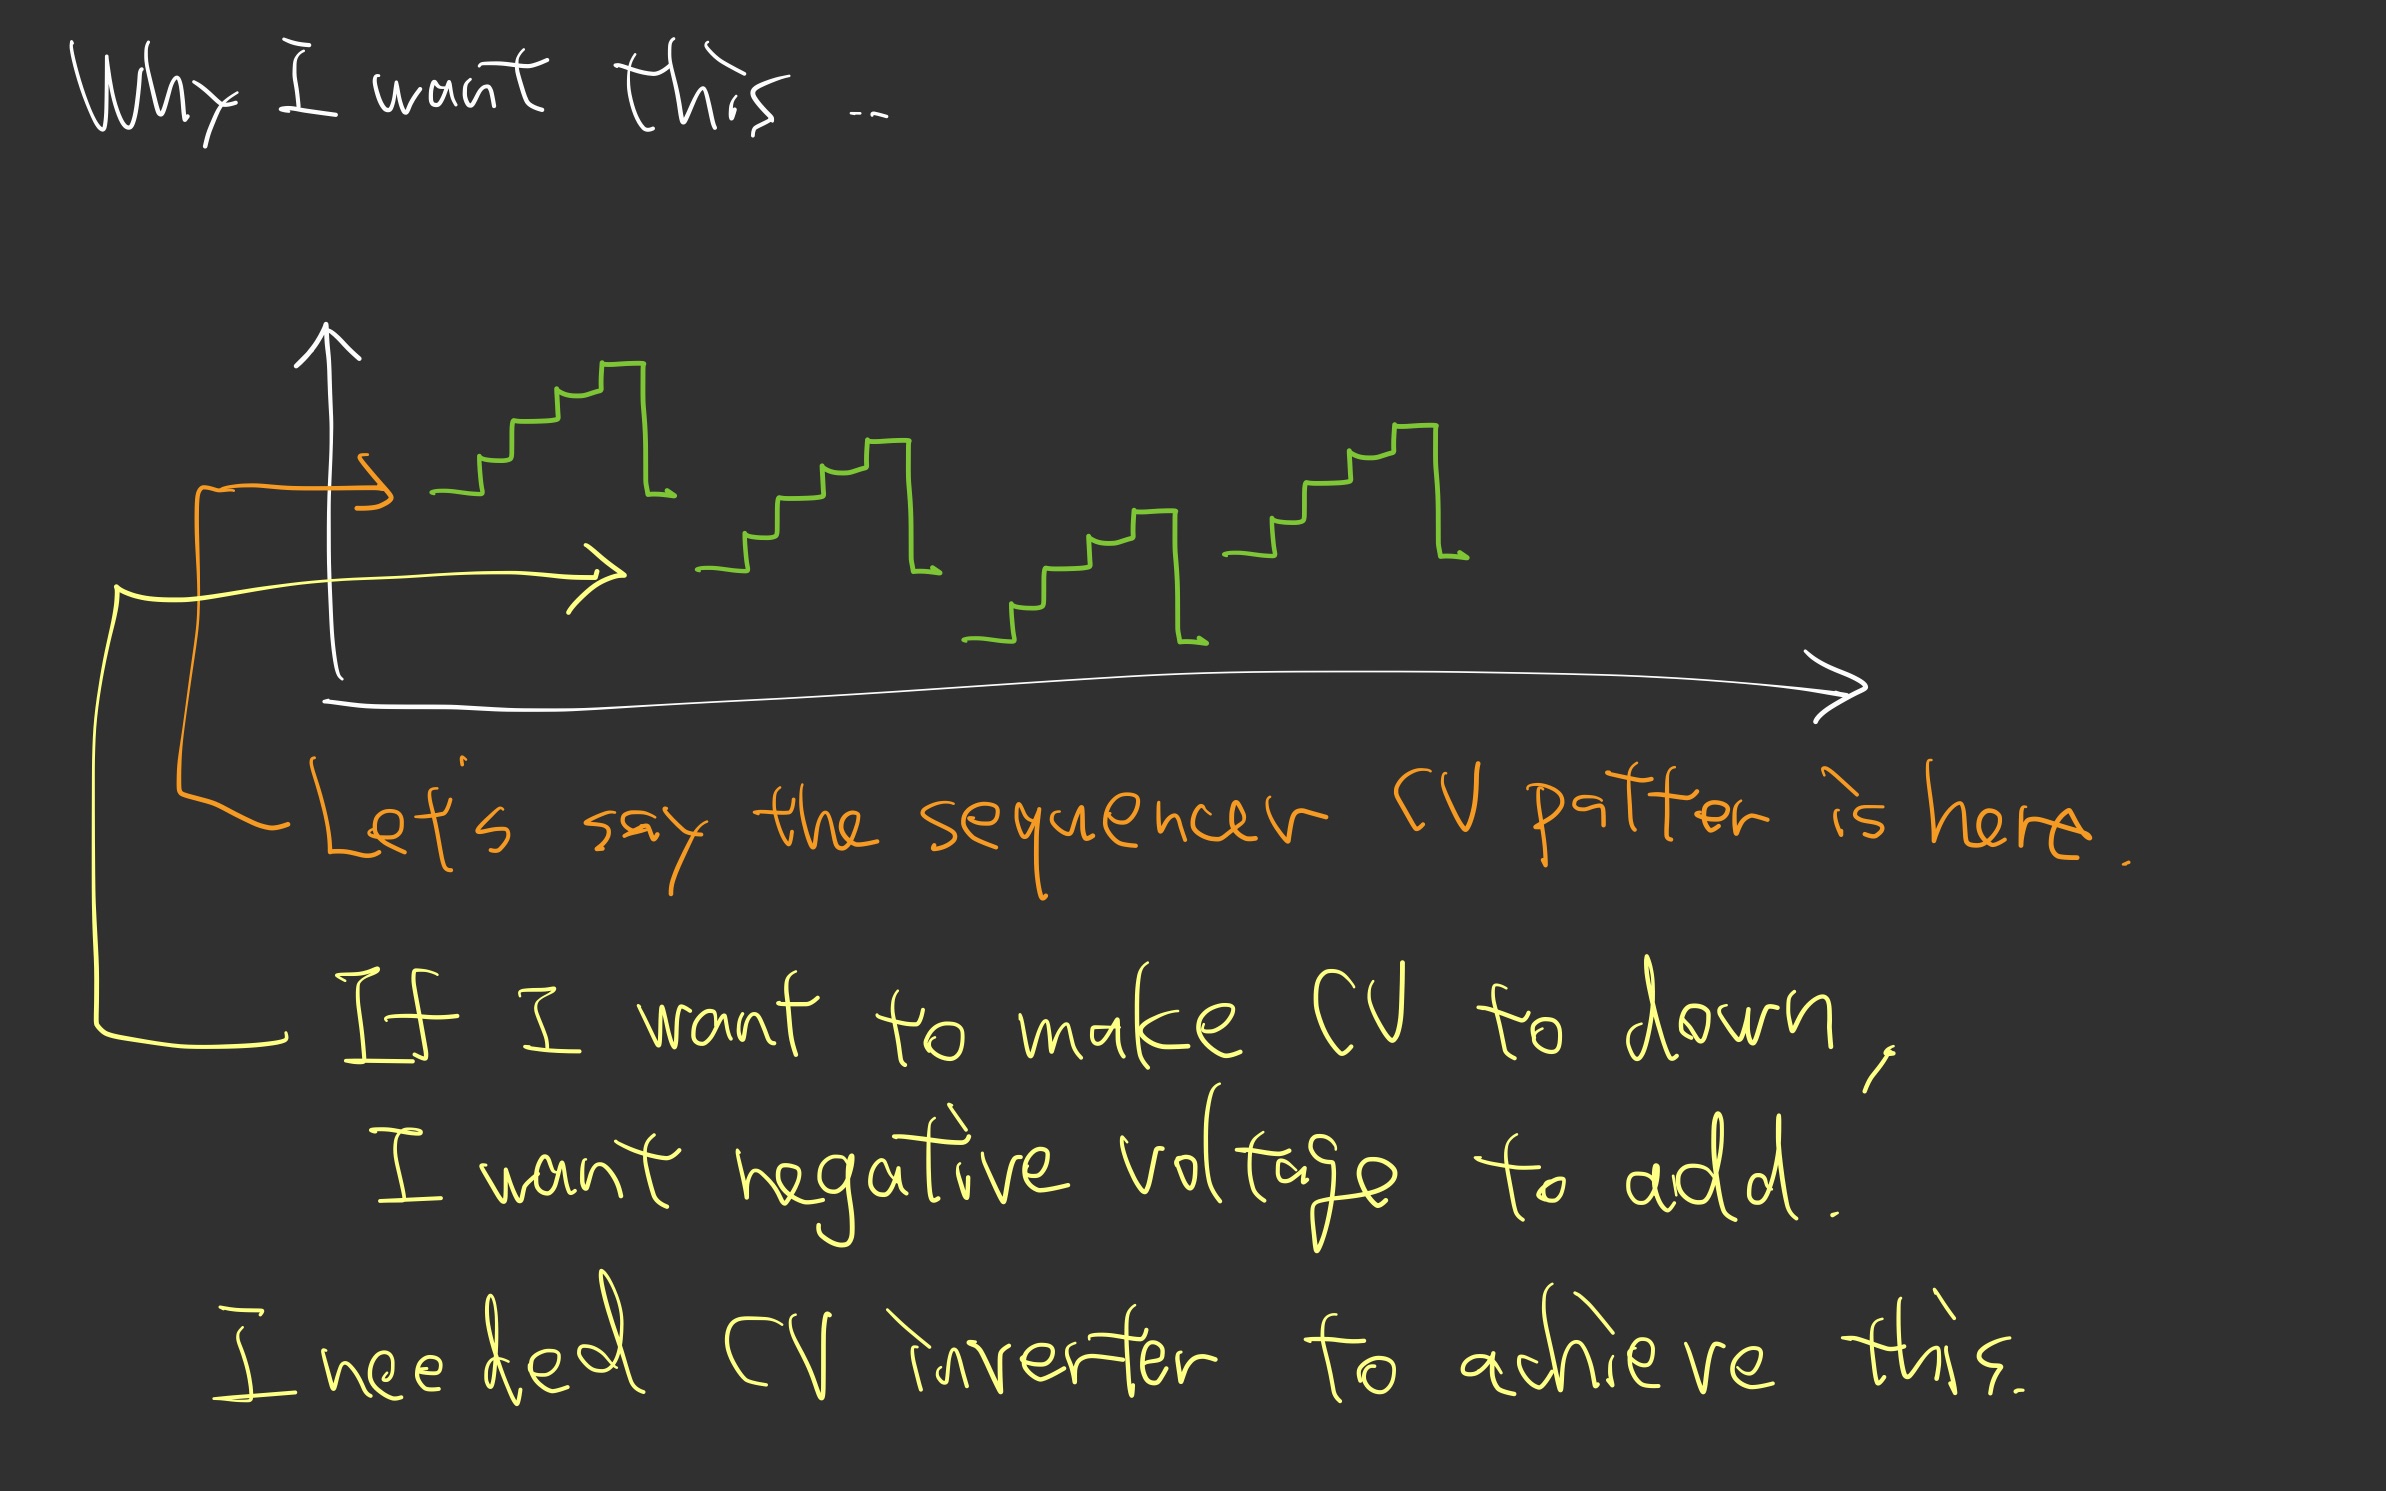 Why I want this ...
Let's say the sequencer CV patter is here.
If I want to make CV to down,
I want negative voltage to add.
I needed CV inverter to achieve this.